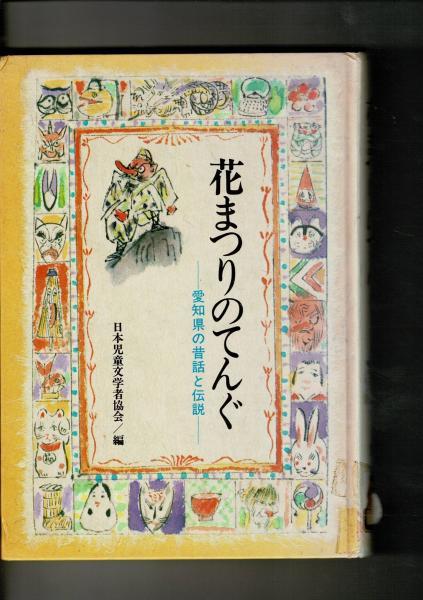 花まつりのてんぐ
――愛知県の昔話と伝説――
日本児童文学者協会／編